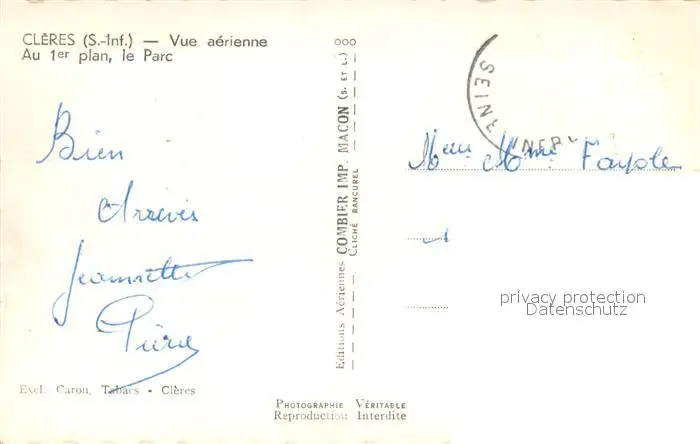 CLÈRES (S.-Inf.) — Vue aérienne
Au 1er plan, le Parc
Bien
Arrivés
Jeannette
Pierre
Excl. Caron, Tabacs - Clères
ooo
Editions Aériennes COMBIER IMP. MACON (S. ET L.)
CLICHÉ RANCUREL
PHOTOGRAPHIE VÉRITABLE
Reproduction Interdite
SEINE INFRE
Mme Fayole
privacy protection
Datenschutz